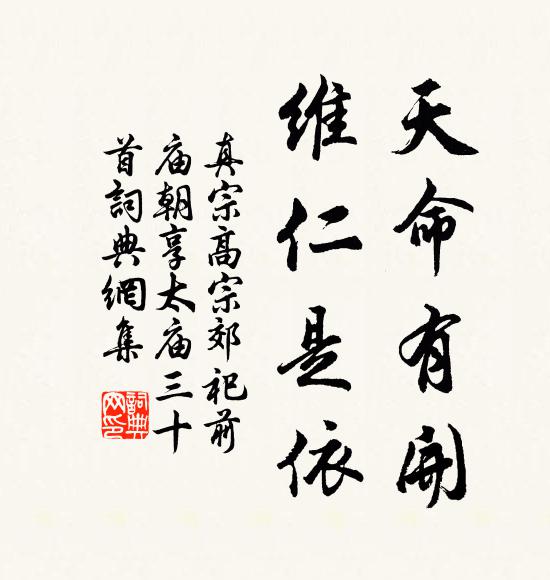 天命有開
維仁是依
真宗高宗郊祀前
庙朝享太庙三十
首詞典網集
詞典
网印